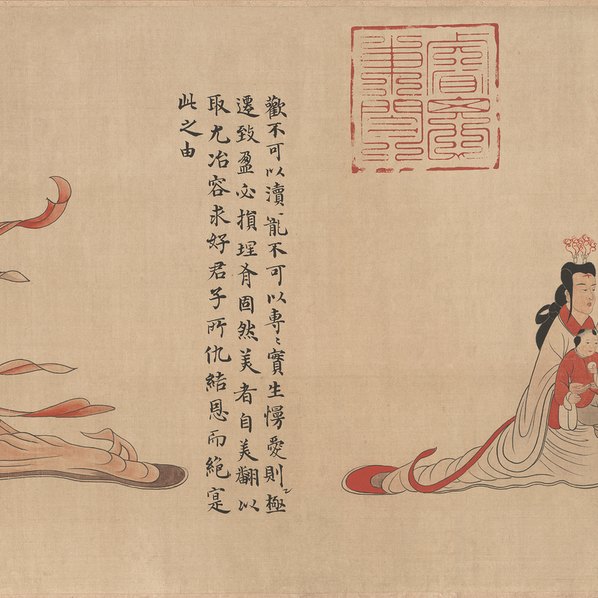 歡不可以瀆寵不可以專專實生慢愛則極
遷致盈必損理有固然美者自美翩以
取尤冶容求好君子所仇結恩而絕寔
此之由